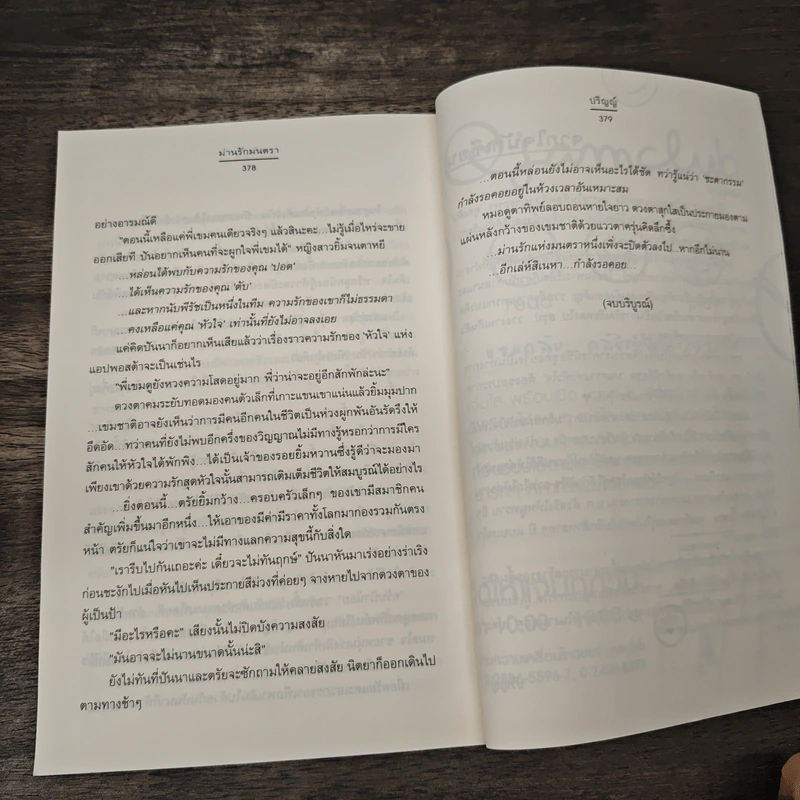 ม่านรักมนตรา
378
อย่างอารมณ์ดี
"ตอนนี้เหลือแค่พี่เขมคนเดียวจริงๆ แล้วสินะคะ...ไม่รู้เมื่อไหร่จะขาย
ออกเสียที ปันอยากเห็นคนที่จะผูกใจพี่เขมได้" หญิงสาวยิ้มจนตาหยี
...หล่อนได้พบกับความรักของคุณ 'ปอด'
...ได้เห็นความรักของคุณ 'ตับ'
...และหากนับพีรัชเป็นหนึ่งในทีม ความรักของเขาก็ไม่ธรรมดา
...คงเหลือแค่คุณ 'หัวใจ' เท่านั้นที่ยังไม่อาจลงเอย
แค่คิดปันนาก็อยากเห็นเสียแล้วว่าเรื่องราวความรักของ 'หัวใจ' แห่ง
แอปพอสต้าจะเป็นเช่นไร
"พี่เขมดูยังหวงความโสดอยู่มาก พี่ว่าน่าจะอยู่อีกสักพักล่ะนะ"
ดวงตาคมระยับทอดมองคนตัวเล็กที่เกาะแขนเขาแน่นแล้วยิ้มมุมปาก
...เขมชาติอาจยังเห็นว่าการมีคนอีกคนในชีวิตเป็นห่วงผูกพันอันรัดรึงให้
อึดอัด...ทว่าคนที่ยังไม่พบอีกครึ่งของวิญญาณไม่มีทางรู้หรอกว่าการมีใคร
สักคนให้หัวใจได้พักพิง...ได้เป็นเจ้าของรอยยิ้มหวานซึ่งรู้ดีว่าจะมองมา
เพียงเขาด้วยความรักสุดหัวใจนั้นสามารถเติมเต็มชีวิตให้สมบูรณ์ได้อย่างไร
...ยิ่งตอนนี้...ตรัยยิ้มกว้าง...ครอบครัวเล็กๆ ของเขามีสมาชิกคน
สำคัญเพิ่มขึ้นมาอีกหนึ่ง...ให้เอาของมีค่ามีราคาทั้งโลกมากองรวมกันตรง
หน้า ตรัยก็แน่ใจว่าเขาจะไม่มีทางแลกความสุขนี้กับสิ่งใด
"เรารีบไปกันเถอะค่ะ เดี๋ยวจะไม่ทันฤกษ์" ปันนาหันมาเร่งอย่างร่าเริง
ก่อนชะงักไปเมื่อหันไปเห็นประกายสีม่วงที่ค่อยๆ จางหายไปจากดวงตาของ
ผู้เป็นป้า
"มีอะไรหรือคะ" เสียงนั้นไม่ปิดบังความสงสัย
"มันอาจจะไม่นานขนาดนั้นน่ะสิ"
ยังไม่ทันที่ปันนาและตรัยจะซักถามให้คลายสงสัย นิตยาก็ออกเดินไป
ตามทางช้าๆ
ปริญญ์
379
...ตอนนี้หล่อนยังไม่อาจเห็นอะไรได้ชัด ทว่ารู้แน่ว่า 'ชะตากรรม'
กำลังรอคอยอยู่ในห้วงเวลาอันเหมาะสม
หมอดูตาทิพย์ลอบถอนหายใจยาว ดวงตาสุกใสเป็นประกายมองตาม
แผ่นหลังกว้างของเขมชาติด้วยแววตาครุ่นคิดลึกซึ้ง
...ม่านรักแห่งมนตราหนึ่งเพิ่งจะปิดตัวลงไป...หากอีกไม่นาน
...อีกเล่ห์สิเนหา...กำลังรอคอย...
(จบบริบูรณ์)